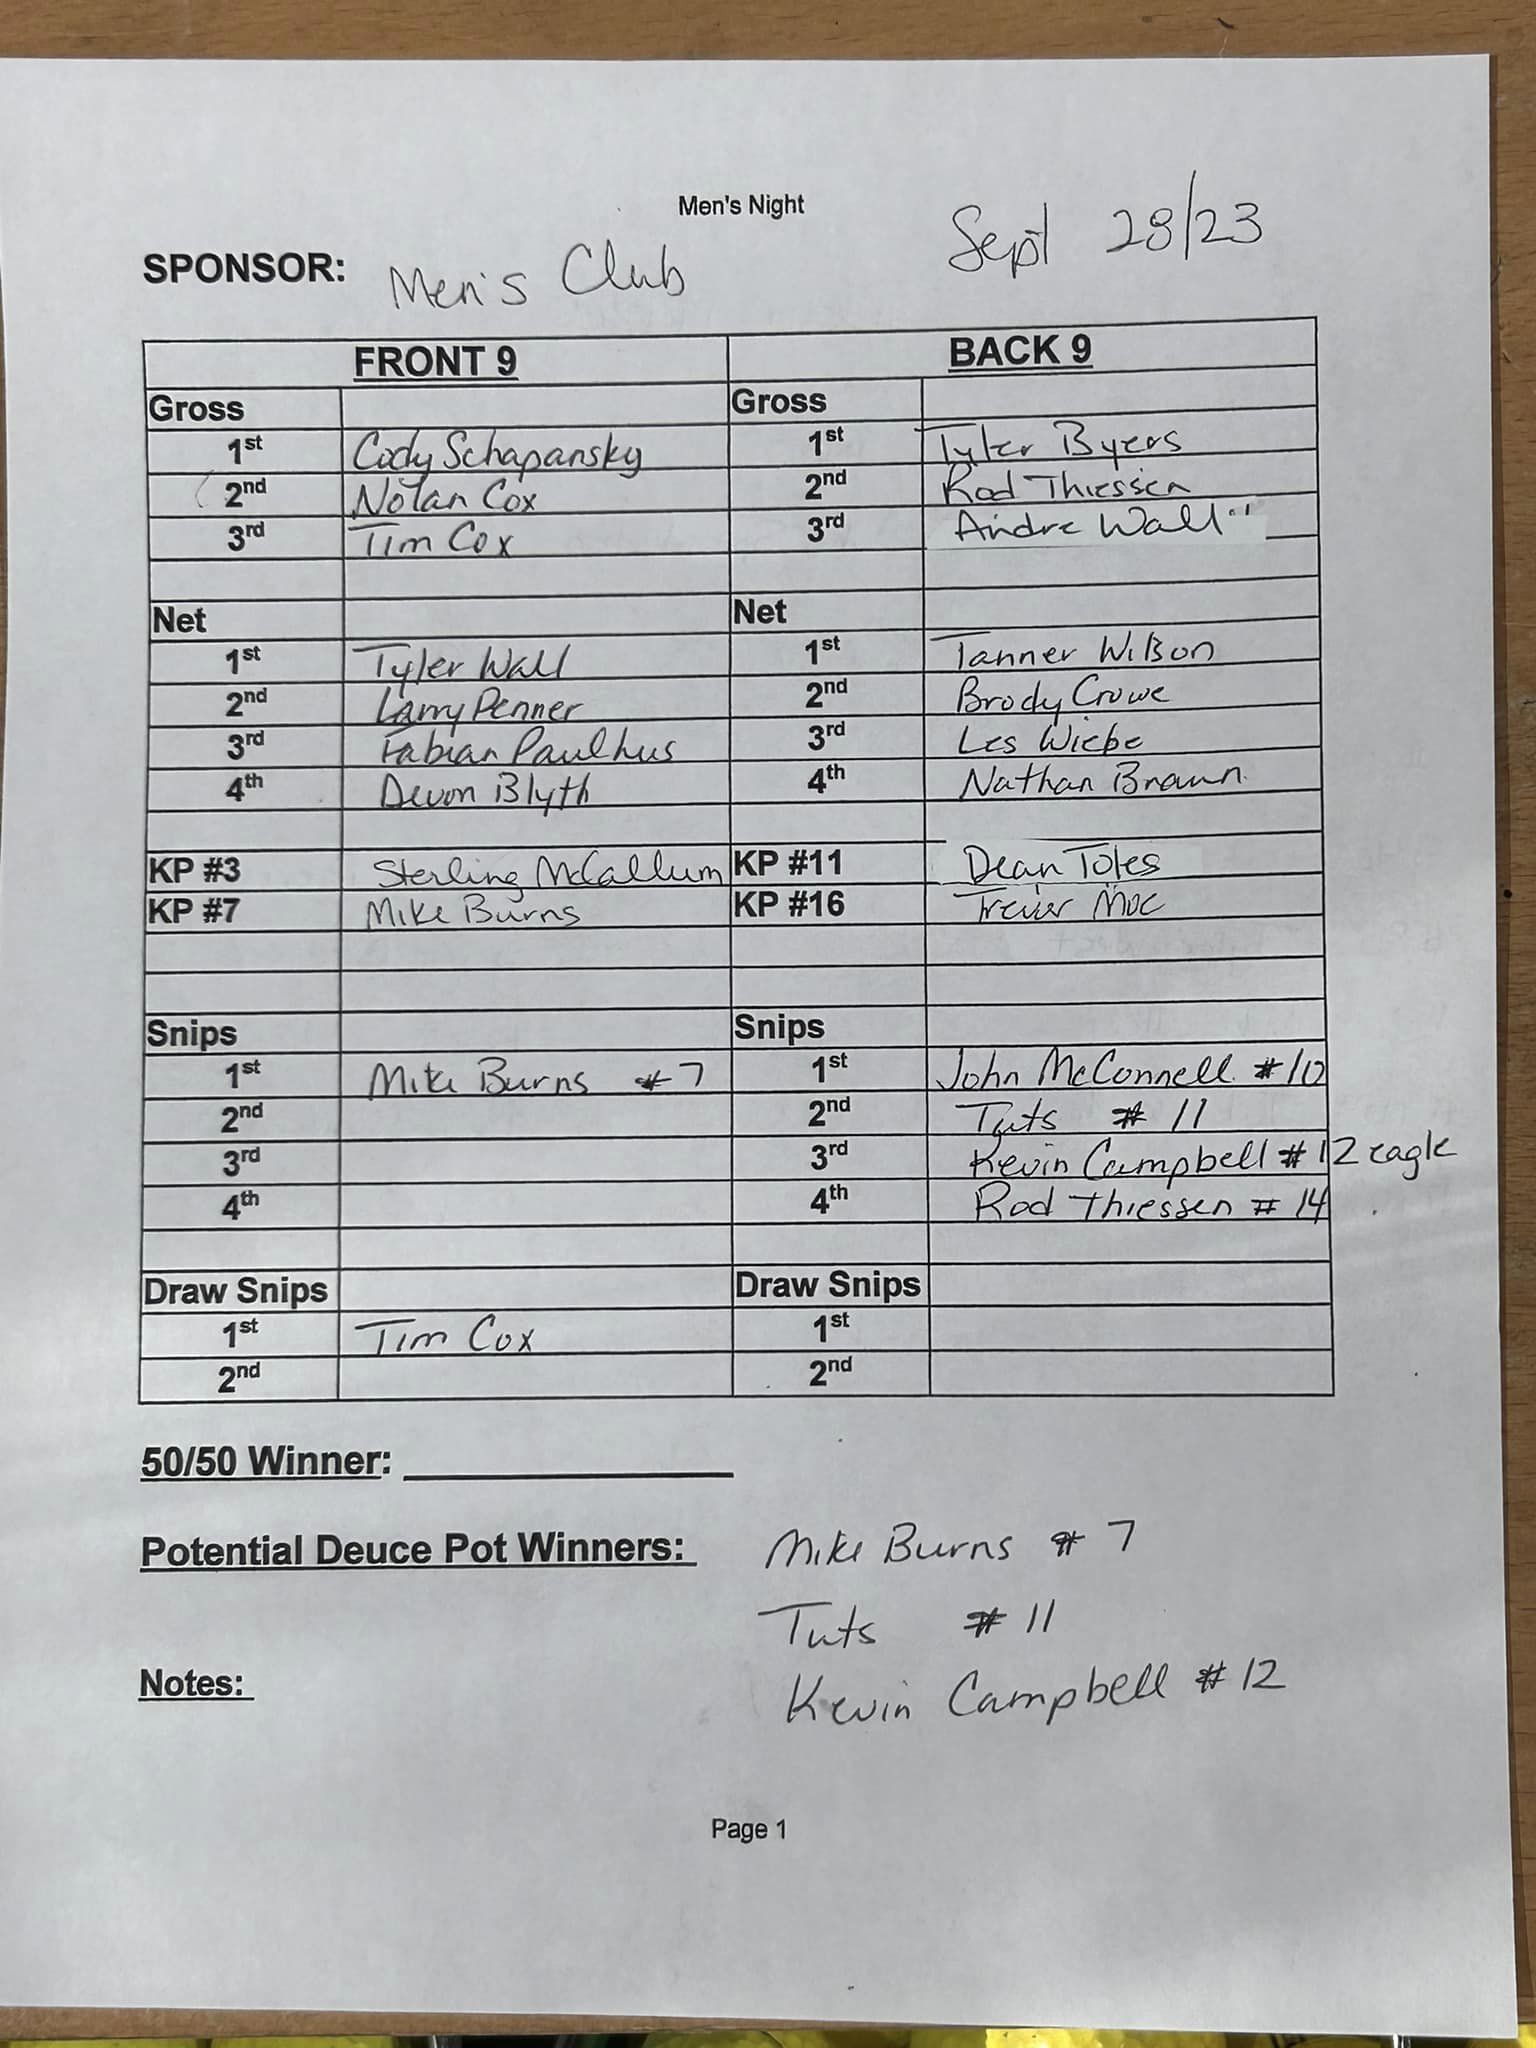 Men's Night
SPONSOR: Men's Club Sept 28/23
FRONT 9 BACK 9
Gross Gross
1st Cody Schapansky 1st Tyler Byers
2nd Nolan Cox 2nd Rod Thiessen
3rd Tim Cox 3rd Andre Wall
Net Net
1st Tyler Wall 1st Tanner Wilson
2nd Larry Penner 2nd Brody Crowe
3rd Fabian Paulhus 3rd Les Wiebe
4th Devon Blyth 4th Nathan Braun
KP #3 Sterling McCallum KP #11 Dean Toles
KP #7 Mike Burns KP #16 Trevor Moe
Snips Snips
1st Mike Burns #7 1st John McConnell #10
2nd 2nd Tuts #11
3rd 3rd Kevin Campbell #12 eagle
4th 4th Rod Thiessen #14
Draw Snips Draw Snips
1st Tim Cox 1st
2nd 2nd
50/50 Winner:
Potential Deuce Pot Winners: Mike Burns #7
Tuts #11
Notes: Kevin Campbell #12
Page 1